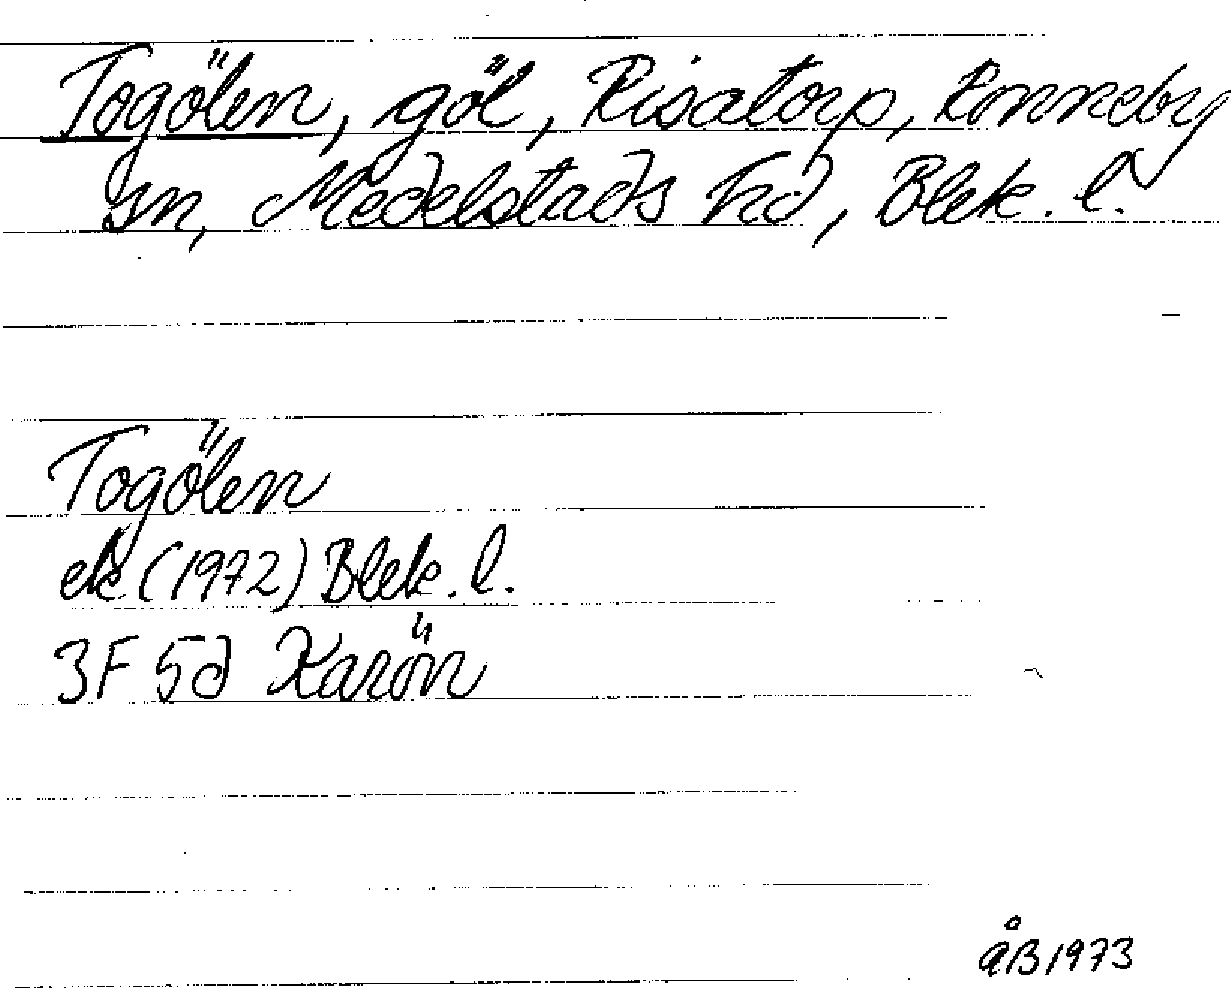 Togölen, göl, Risatorp, Ronneby
sn, Medelstads hd, Blek. l.
Togölen
ek (1972) Blek. l.
3F 5d Karön
åB 1973